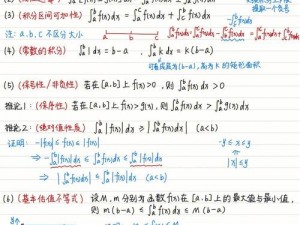 (3) (积分区间可加性) ∫ₐᵇ f(x)dx = ∫ₐᶜ f(x)dx + ∫꜀ᵇ f(x)dx
注: a.b.c 不区分大小
(4) (常数的积分) ∫ₐᵇ 1 dx = b-a . ∫ₐᵇ k dx = k(b-a)
可看成底为(b-a),高为k的矩形面积
(5) (保号性/非负性) 若在[a.b]上f(x)>0 , 则 ∫ₐᵇ f(x)dx > 0
推论1: (保序性) 若在[a.b]上f(x)>g(x), 则 ∫ₐᵇ f(x)dx > ∫ₐᵇ g(x)dx
推论2: (绝对值性质) ∫ₐᵇ |f(x)|dx ≥ |∫ₐᵇ f(x)dx| (a<b)
证明: -|f(x)| ≤ f(x) ≤ |f(x)|
-y ≤ x ≤ y
⇒ -∫ₐᵇ |f(x)|dx ≤ ∫ₐᵇ f(x)dx ≤ ∫ₐᵇ |f(x)|dx
|x| ≤ y
⇒ |∫ₐᵇ f(x)dx| ≤ ∫ₐᵇ |f(x)|dx
(6) (基本估值不等式) 设 M, m 分别为函数 f(x) 在 [a.b] 上的最大值与最小值,
则 m(b-a) ≤ ∫ₐᵇ f(x)dx ≤ M(b-a)